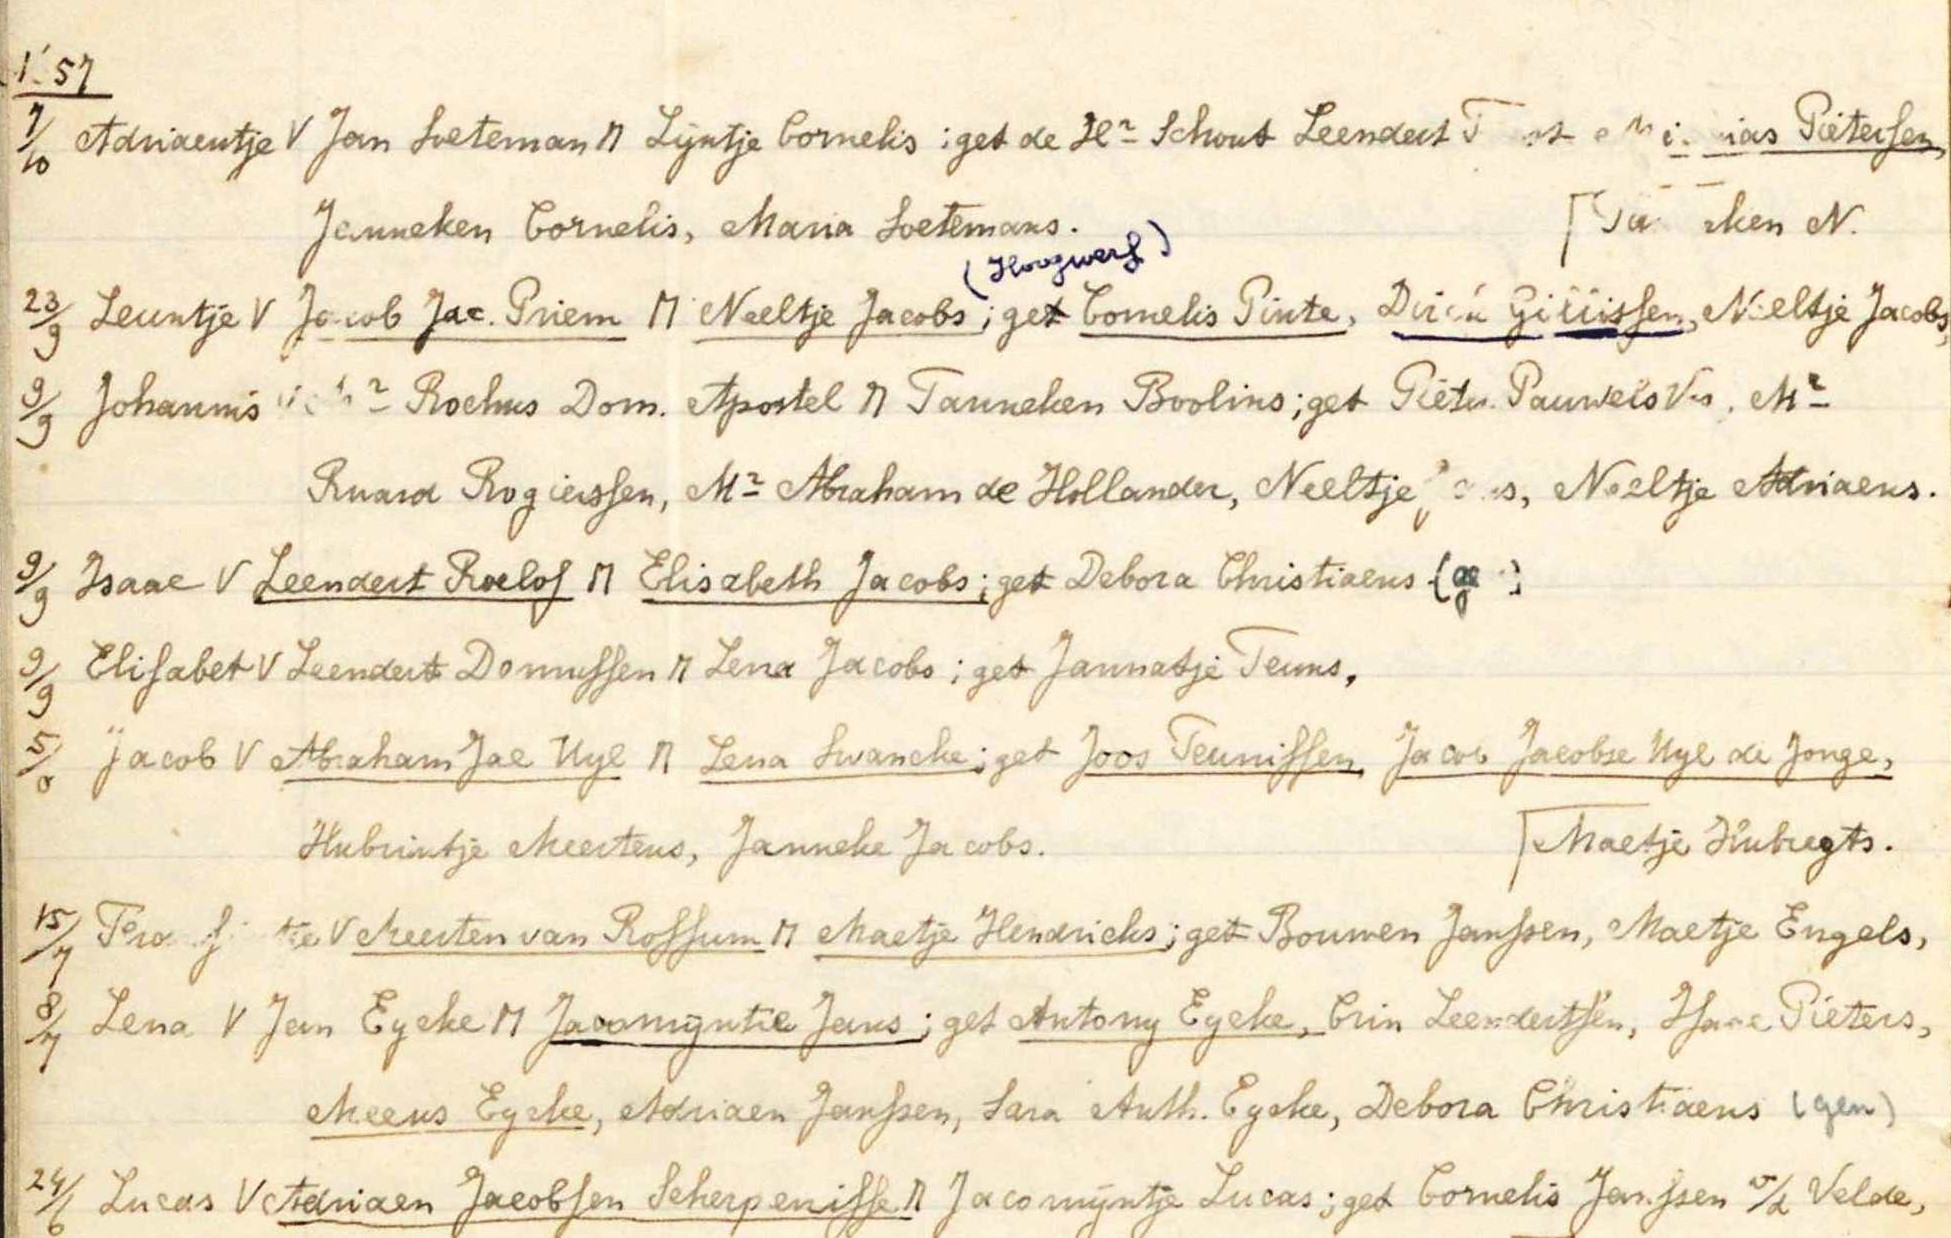 57
7/10 Adriaentje V Jan Soeteman M Lyntje Cornelis ; get de Hr Schout Leendert Pieterssen,
Janneken Cornelis, Maria Soetemans. N.
(Hoogwerf)
23/9 Leuntje V Jacob Jac. Priem M Neeltje Jacobs ; get Cornelis Pinte, Dirck Gillissen, Neeltje Jacobs,
9/9 Johannis Rochus Dom. Apostel M Tanneken Boolins ; get Pieter Pauwels Vos, Mr
Ruard Rogierssen, Mr Abraham de Hollander, Neeltje Neeltje Adriaens.
9/9 Isaac V Leendert Roelof M Elisabeth Jacobs ; get Debora Christiaens
9/9 Elisabet V Leendert Domussen M Lena Jacobs ; get Jannatje Teuns.
5/8 Jacob V Abraham Jac Uyl M Lena Swancke ; get Joos Teunissen, Jacob Jacobse Uyl de Jonge,
Hubrintje Meertens, Janneke Jacobs. Maetje Hubregts.
15/7 V Meerten van Rossum M Maetje Hendricks ; get Bouwen Janssen, Maetje Engels,
8/7 Lena V Jan Eycke M Jacomyntie Jans ; get Antony Eycke, Crin Leendertsen, Isaac Pieters,
Meeus Eycke, Adriaen Janssen, Sara Anth. Eycke, Debora Christiaens (gen)
24/6 Lucas V Adriaen Jacobsen Scherpenisse M Jacomyntje Lucas ; get Cornelis Janssen v/d Velde,